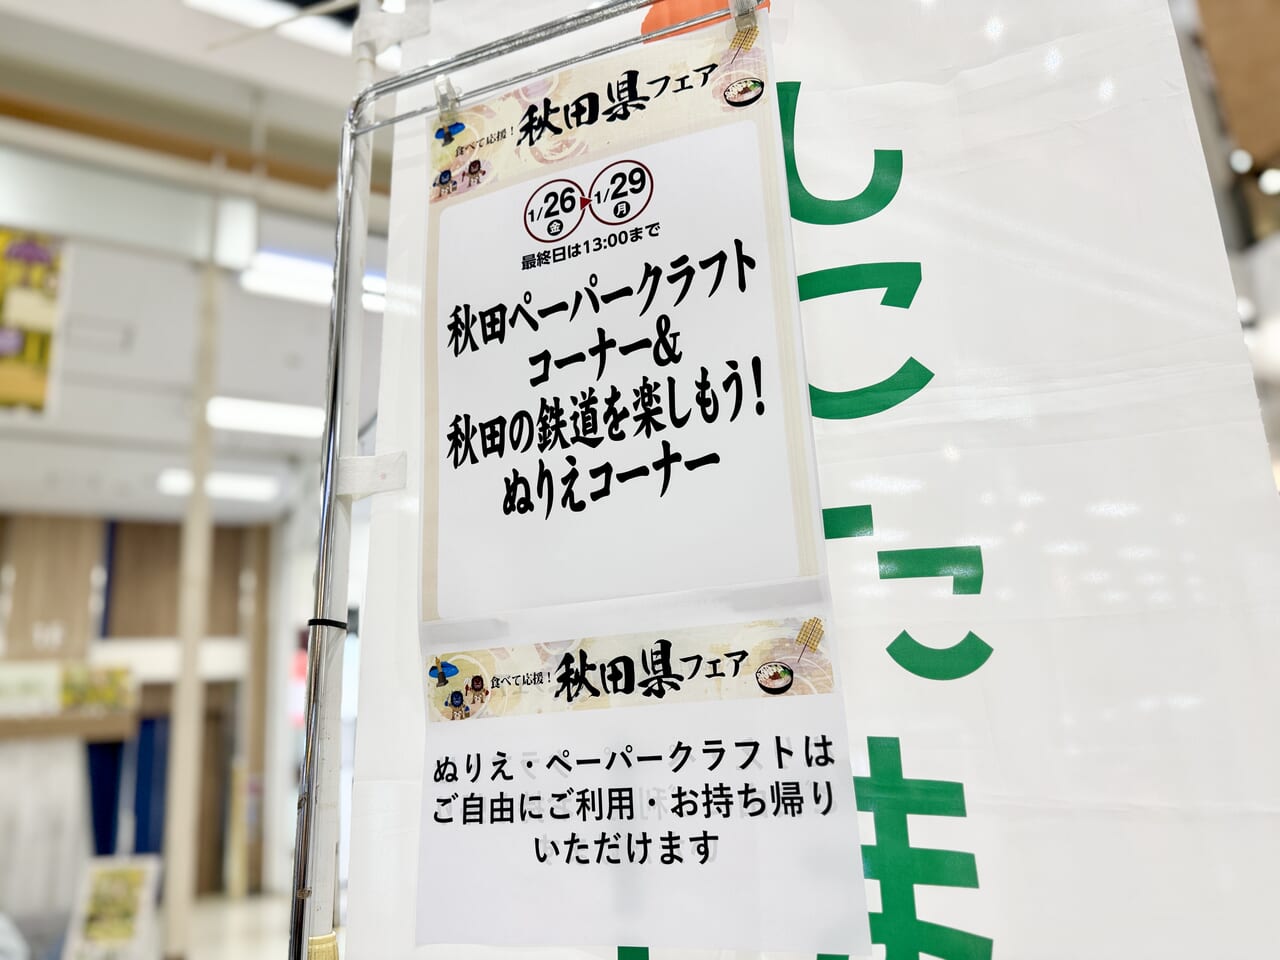 食べて応援！秋田県フェア
1/26金▶1/29月
最終日は13:00まで
秋田ペーパークラフト
コーナー&
秋田の鉄道を楽しもう！
ぬりえコーナー
食べて応援！秋田県フェア
ぬりえ・ペーパークラフトは
ご自由にご利用・お持ち帰り
いただけます